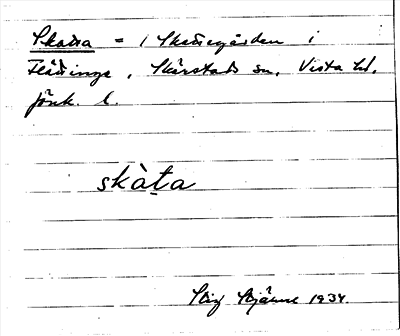 Skata = 1 Skattegården i
Flättinge, Skärstads sn, Vista hd,
Jönk. l.
skàta
Stig Bjärme 1934.